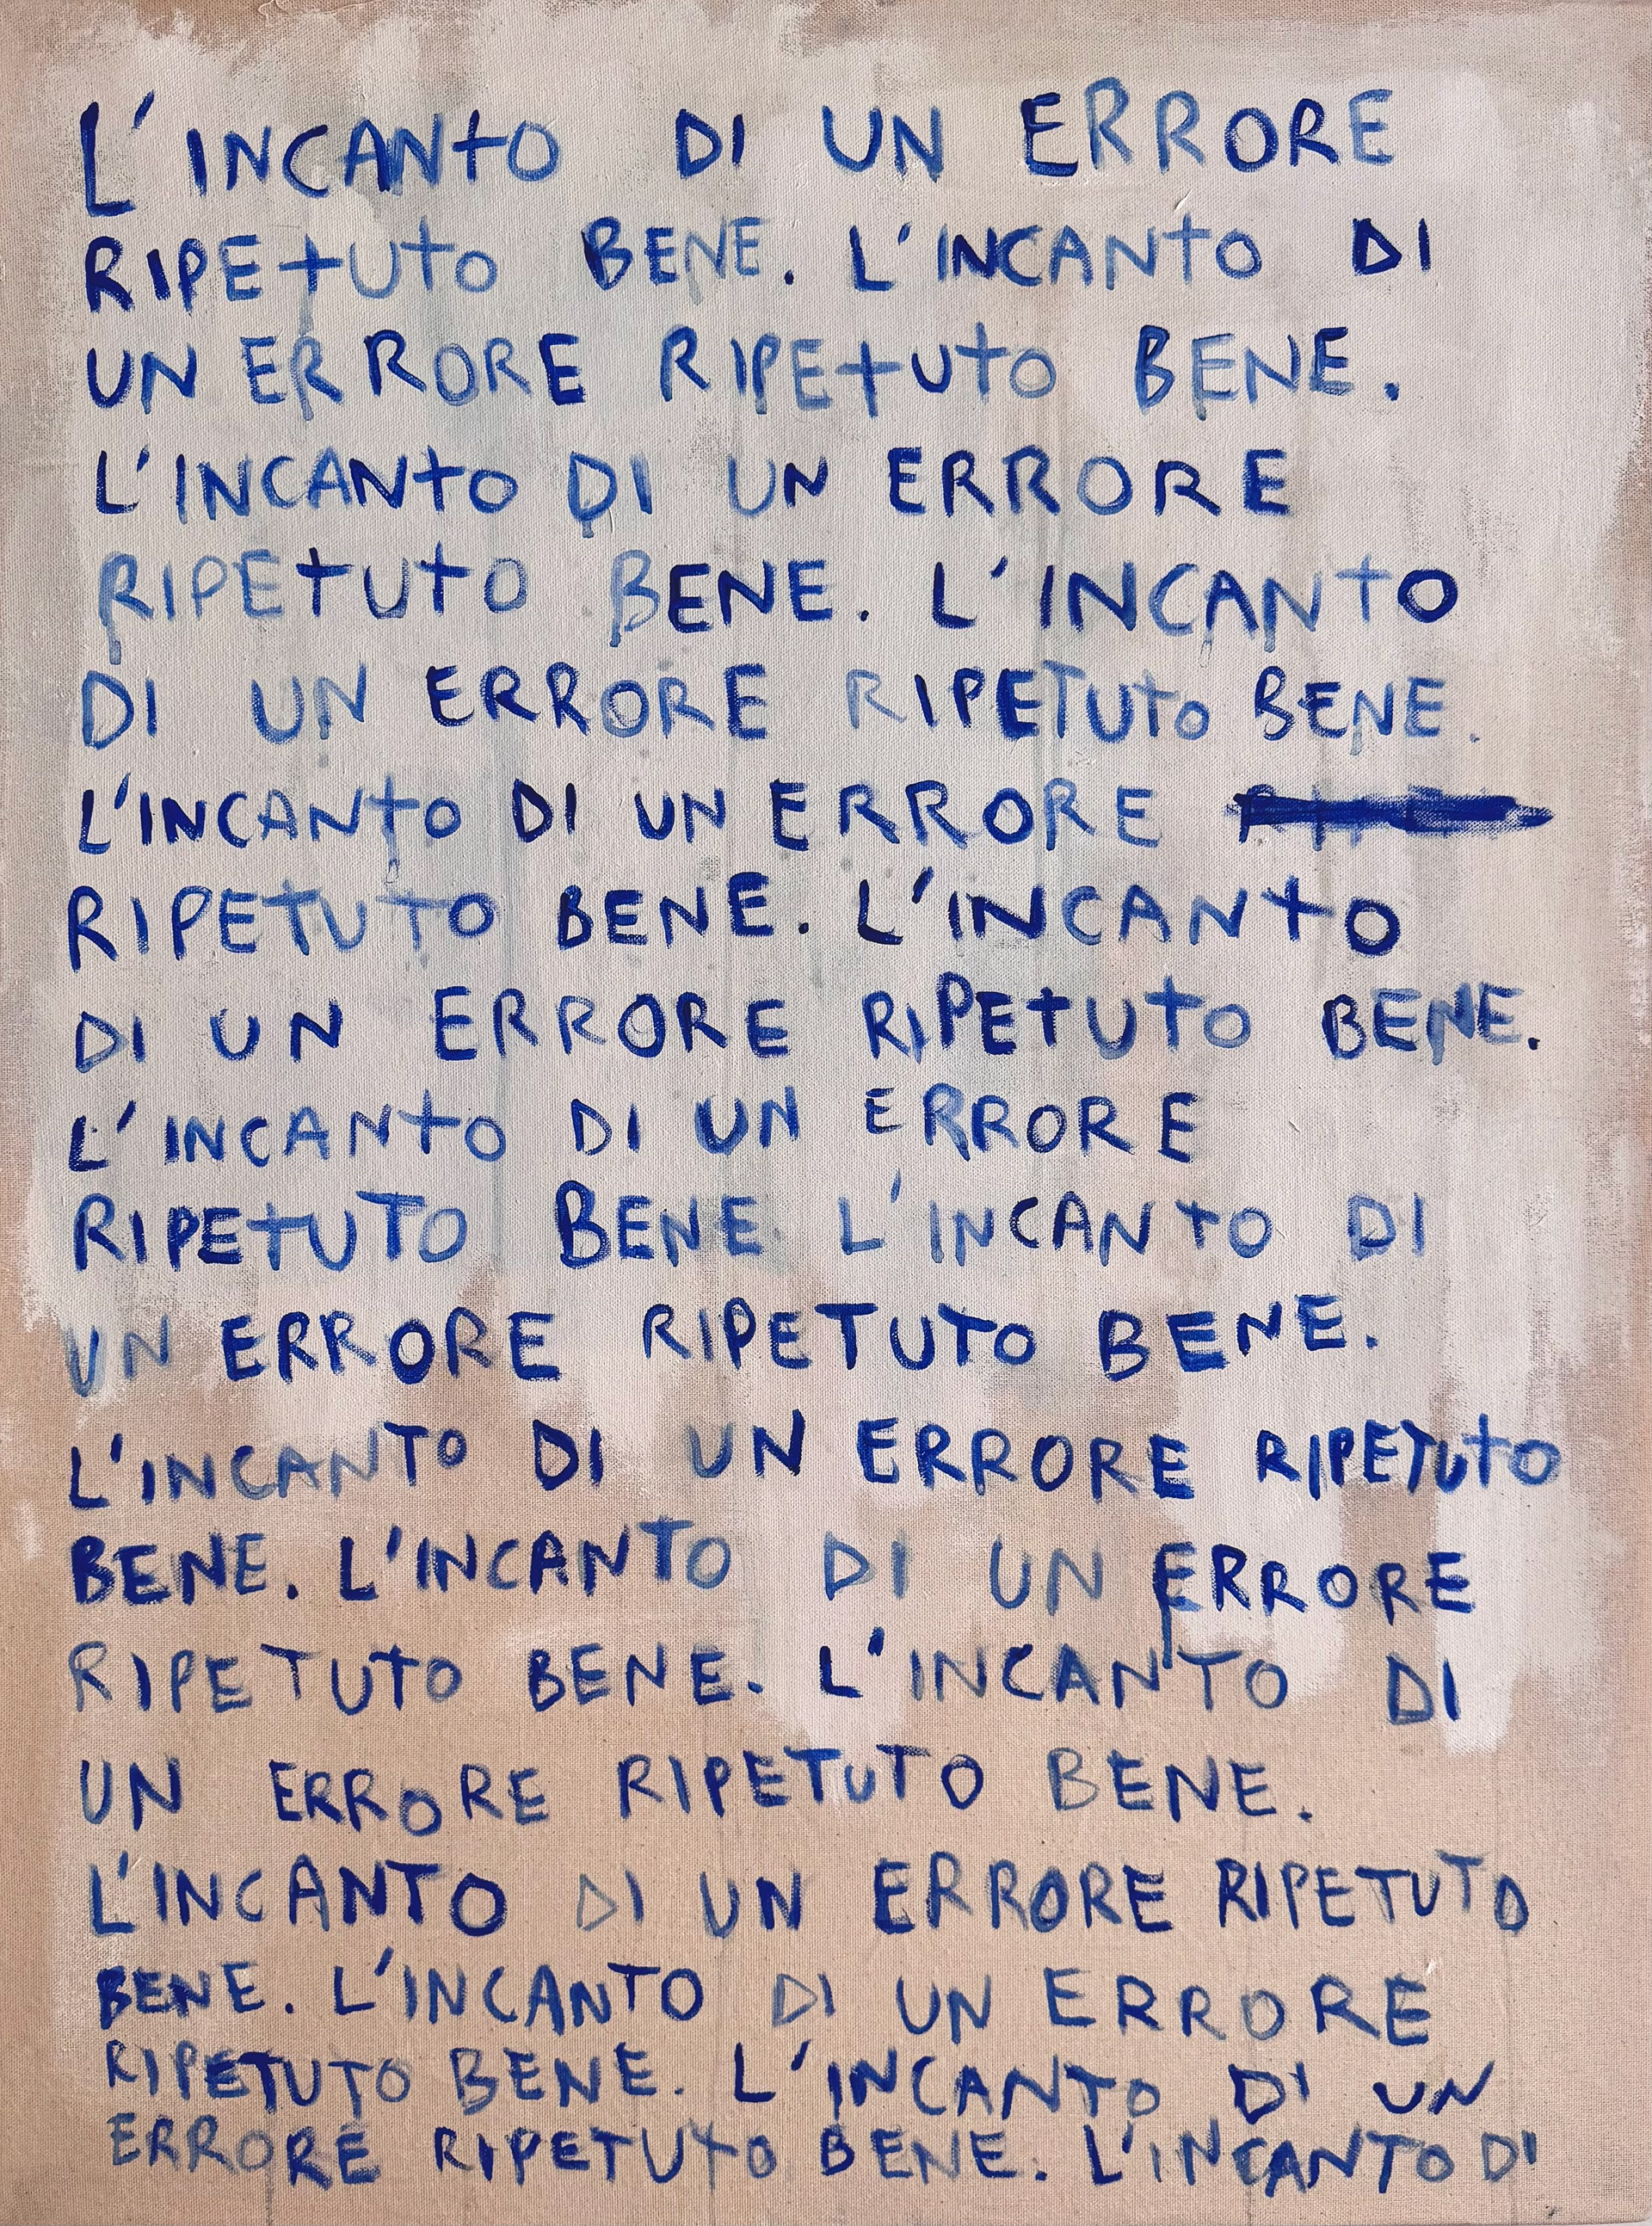 L'INCANTO DI UN ERRORE
RIPETUTO BENE. L'INCANTO DI
UN ERRORE RIPETUTO BENE.
L'INCANTO DI UN ERRORE
RIPETUTO BENE. L'INCANTO
DI UN ERRORE RIPETUTO BENE.
L'INCANTO DI UN ERRORE
RIPETUTO BENE. L'INCANTO
DI UN ERRORE RIPETUTO BENE.
L'INCANTO DI UN ERRORE
RIPETUTO BENE. L'INCANTO DI
UN ERRORE RIPETUTO BENE.
L'INCANTO DI UN ERRORE RIPETUTO
BENE. L'INCANTO DI UN ERRORE
RIPETUTO BENE. L'INCANTO DI
UN ERRORE RIPETUTO BENE.
L'INCANTO DI UN ERRORE RIPETUTO
BENE. L'INCANTO DI UN ERRORE
RIPETUTO BENE. L'INCANTO DI UN
ERRORE RIPETUTO BENE. L'INCANTO DI